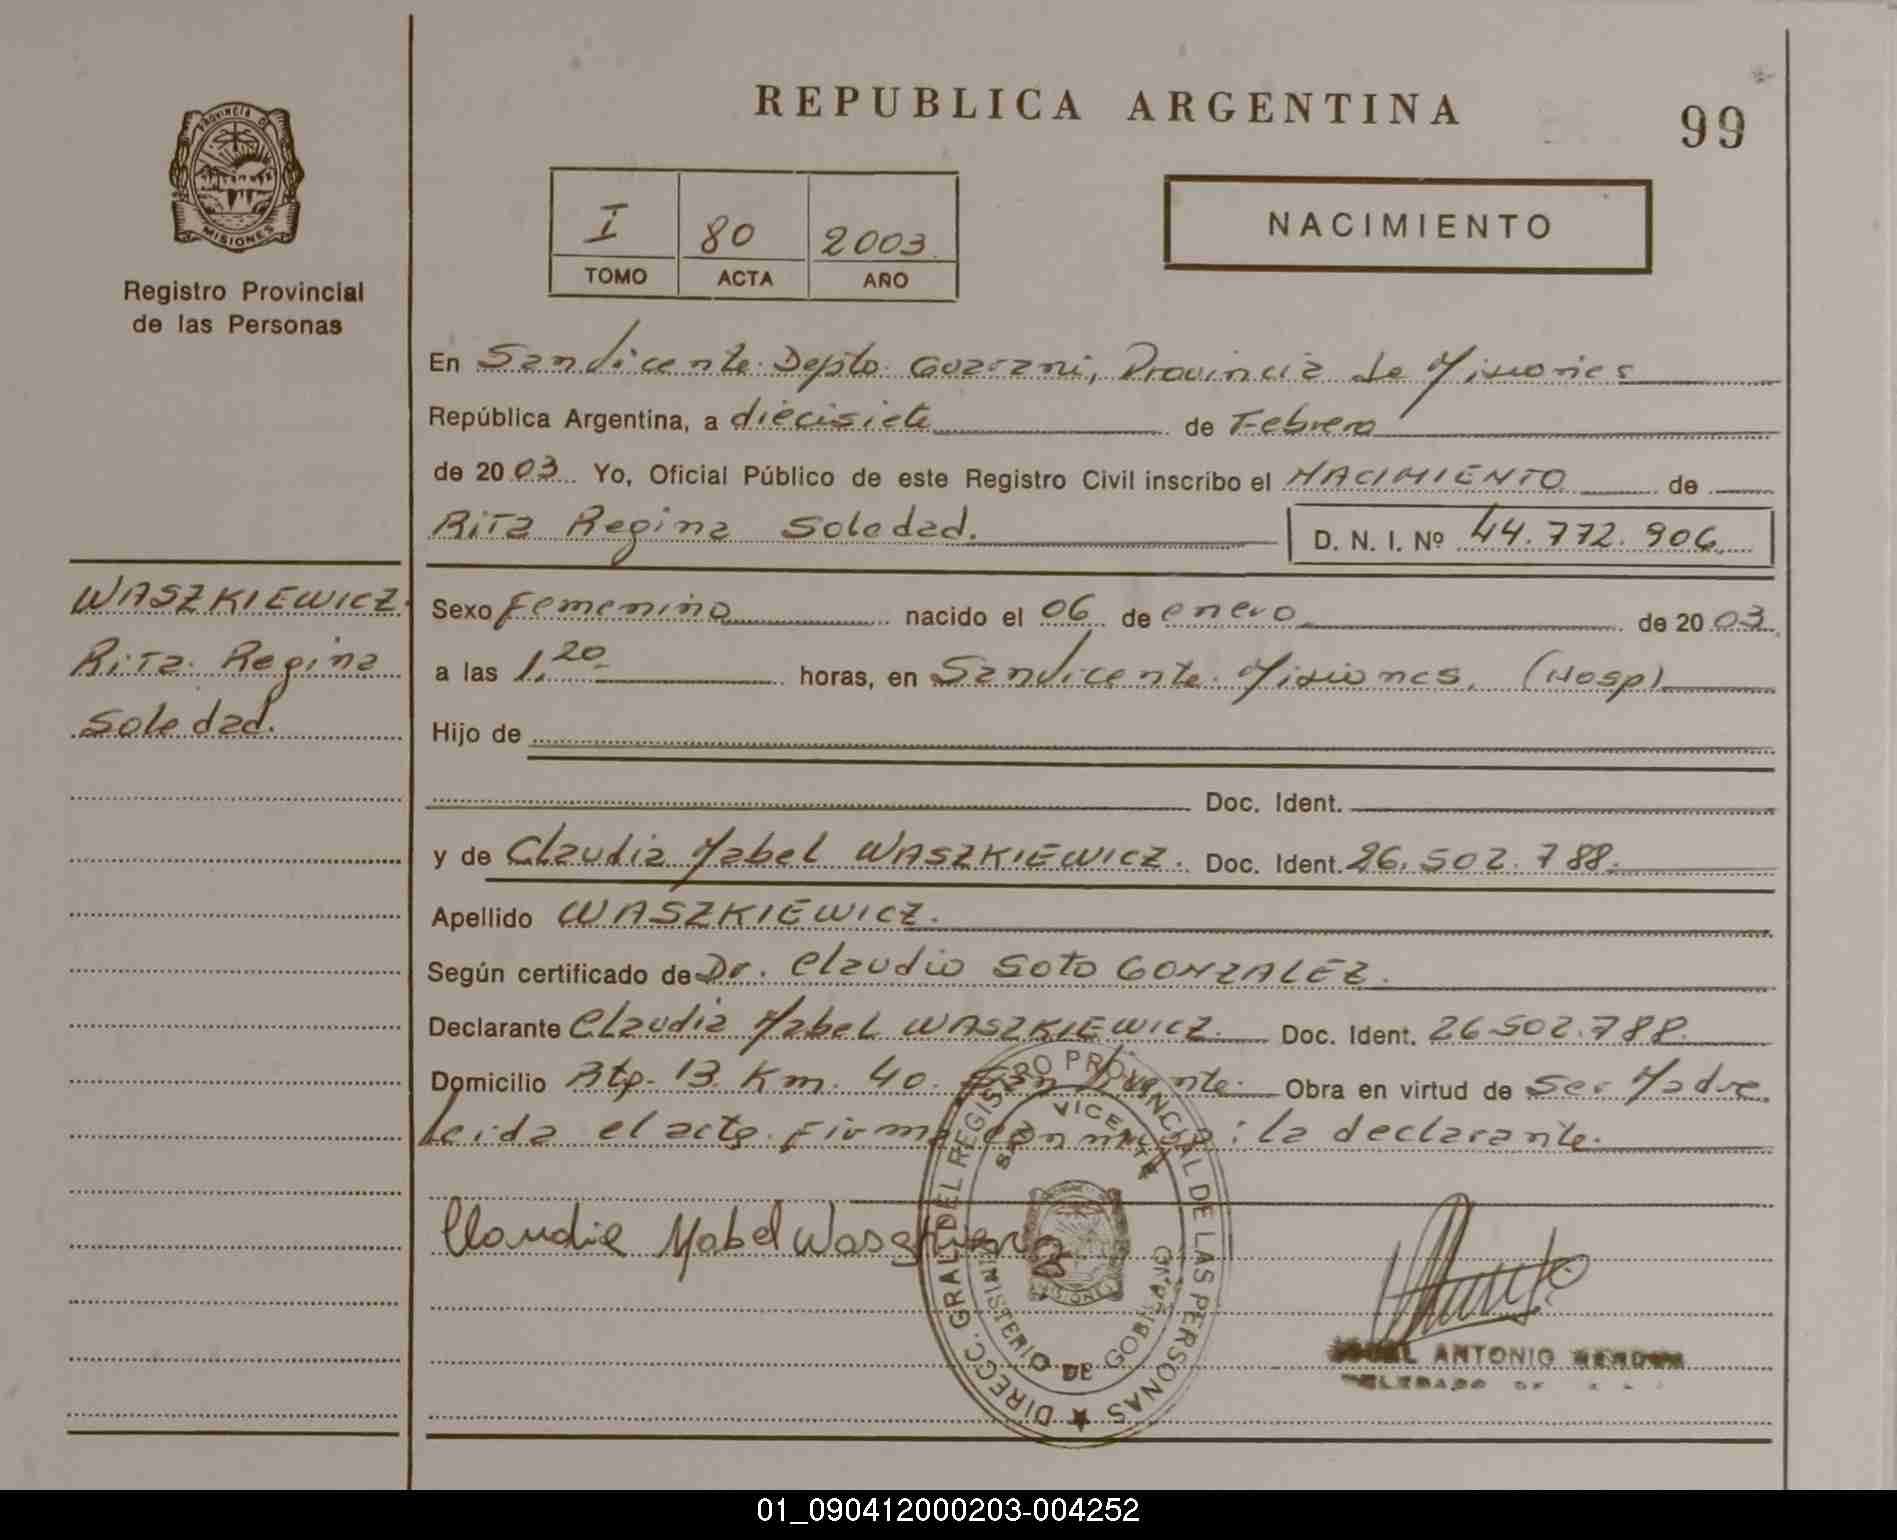 REPUBLICA ARGENTINA
99
PROVINCIA DE
MISIONES
Registro Provincial
de las Personas
I 80 2003
TOMO ACTA AÑO
NACIMIENTO
En San Vicente Depto. Guaraní, Provincia de Misiones
República Argentina, a diecisiete de Febrero
de 2003 Yo, Oficial Público de este Registro Civil inscribo el NACIMIENTO de
Rita Regina Soledad. D. N. I. Nº 44.772.906
WASZKIEWICZ.
Rita Regina
Soledad.
Sexo femenino nacido el 06 de enero de 2003
a las 1,20 horas, en San Vicente Misiones. (Hosp)
Hijo de
Doc. Ident.
y de Claudia Mabel WASZKIEWICZ. Doc. Ident. 26.502.788.
Apellido WASZKIEWICZ.
Según certificado de Dr. Claudio Soto GONZALEZ.
Declarante Claudia Mabel WASZKIEWICZ. Doc. Ident. 26.502.788.
Domicilio Rta. 13 Km. 40. San Vicente. Obra en virtud de ser Madre
leida el acta firma conmigo: la declarante.
Claudia Mabel
DIRECC. GRAL. DEL REGISTRO PROVINCIAL DE LAS PERSONAS
SAN VICENTE
MINISTERIO DE GOBIERNO
MISIONES
ANTONIO
DELEGADO
01_090412000203-004252